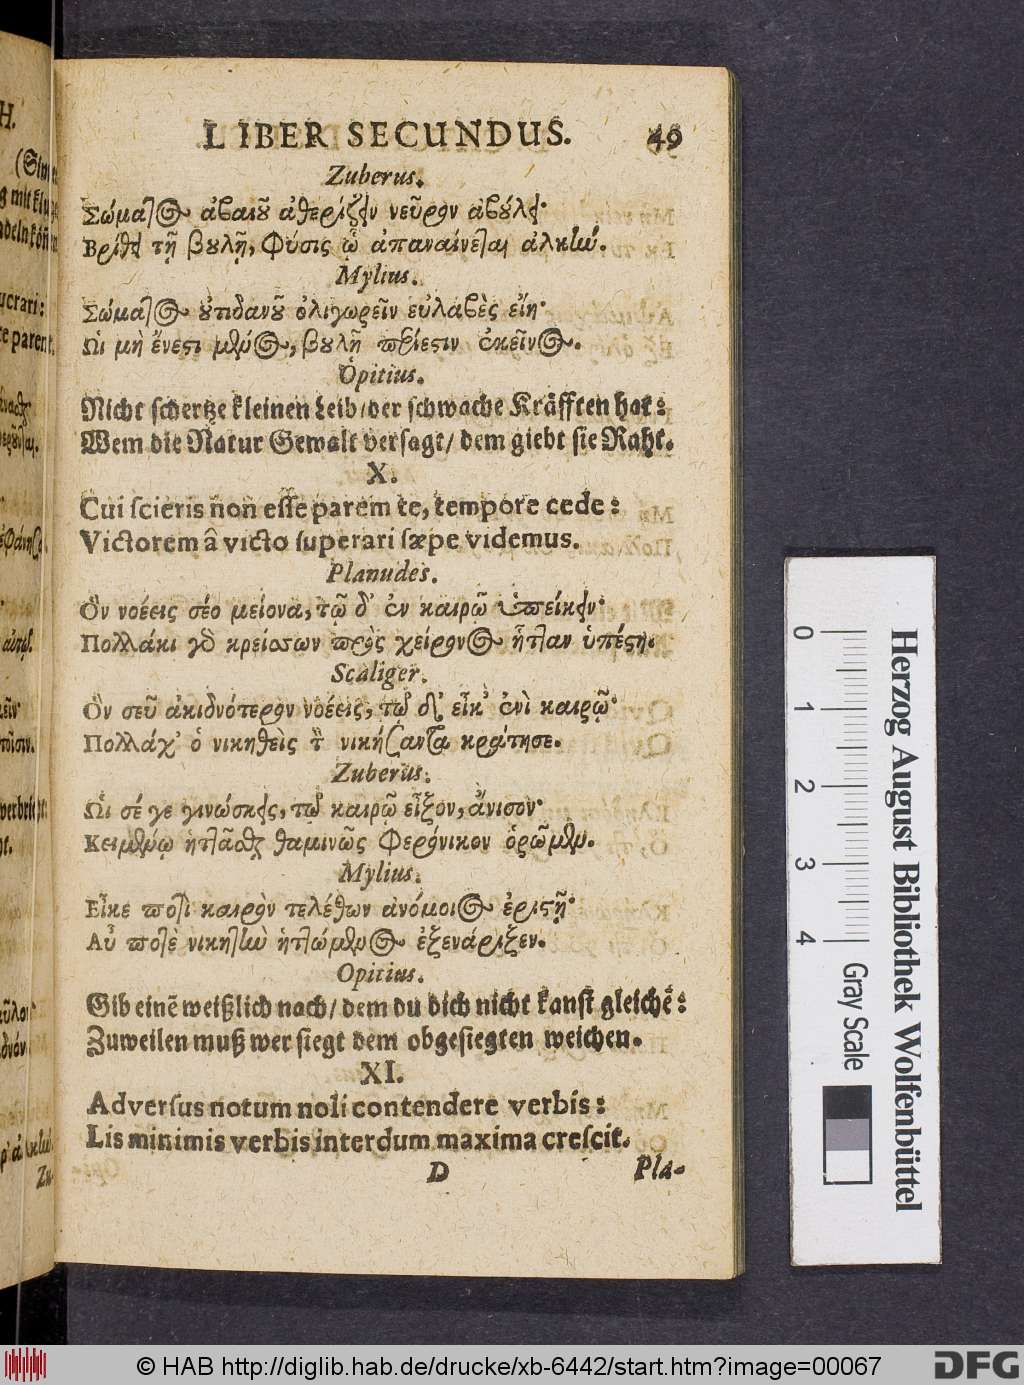 LIBER SECUNDUS. 49
Zuberus.
Σώματος ἀβαιοῦ ἀθερίζειν νεῦρον ἀβούλει·
Βρίθει τῇ βουλῇ, Φύσις ᾧ ἀπαναίνεται ἀλκήν.
Mylius.
Σώματος οὐτιδανοῦ ὀλιγωρεῖν εὐλαβὲς εἴη·
Ωι μὴ ἔνεστι μένος, βουλῇ ἐκεῖνος.
Opitius.
Nicht schertze kleinen Leib/der schwache Kräfften hat:
Wem die Natur Gewalt versagt/ dem giebt sie Raht.
X.
Cui ſcieris non eſſe parem te, tempore cede:
Victorem â victo ſuperari ſæpe videmus.
Planudes.
Ὃν νοέεις σέο μείονα, τῷ δ' ἐν καιρῷ ὑπείκειν·
Πολλάκι γὸ κρείσσων πρὸς χείρονος ἧτταν ὑπέστη.
Scaliger.
Ὃν σεῦ ἀκιδνότερον νοέεις, τῷ εἶκ' ἐνὶ καιρῷ·
Πολλάχ' ὁ νικηθεὶς τὸν νικήσαντα κράτησε.
Zuberus.
Ὧι σέ γε γινώσκεις, τῷ καιρῷ εἶξον, ἄνισον·
Κειμένῳ ἡττᾶσθαι θαμινῶς Φερόνικον ὁρῶμεν.
Mylius.
Εἶκε ποτὶ καιρὸν τελέθων ἀνόμοιος ἐριστῇ·
Αὖ ποτὲ νικητὴν ἡττώμενος ἐξενάριξεν.
Opitius.
Gib einē weißlich nach/ dem du dich nicht kanst gleichē:
Zuweilen muß wer siegt dem obgesiegten weichen.
XI.
Adverſus notum noli contendere verbis:
Lis minimis verbis interdum maxima creſcit.
D Pla-
H.
ucrari:
te parent.
Zu-
Herzog August Bibliothek Wolfenbüttel
0 1 2 3 4 Gray Scale
© HAB http://diglib.hab.de/drucke/xb-6442/start.htm?image=00067
DFG